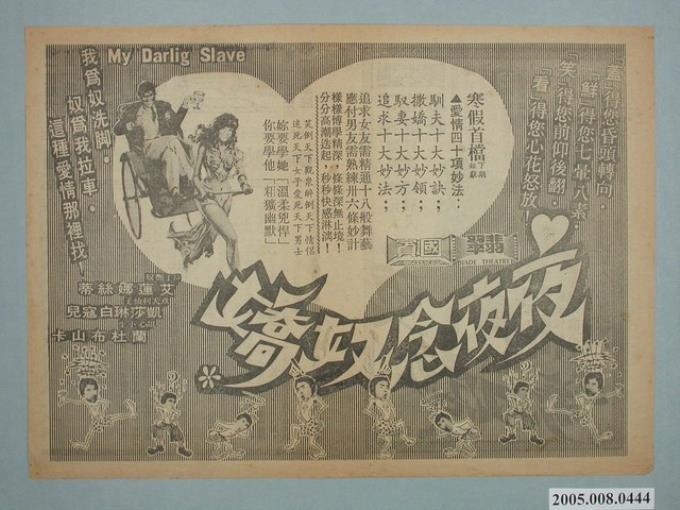 My Darlig Slave
「蓋」得您昏頭轉向，
「鮮」得您七暈八素，
「笑」得您前仰後翻，
「看」得您心花怒放！
寒假首檔
▲愛情四十項妙法：
馴夫十大妙訣；
撒嬌十大妙領；
馭妻十大妙方；
追求十大妙法；
追求女友需精通十八般舞藝
應付男友需熟練卅六條妙計
樣樣博學精深，條條深無止境！
分分高潮迭起，秒秒快感淋漓！
笑倒天下觀眾醉倒天下情侶
迷死天下女子愛死天下男士
妳要學她「溫柔兇悍」
你要學他「粗獷幽默」
我為奴洗脚，
奴為我拉車，
這種愛情那裡找！
國賓
翡翠
JADE THEATRE
夜夜念奴嬌
艾蓮娜絲蒂
凱莎琳白寇兒
蘭杜布山卡
2005.008.0444